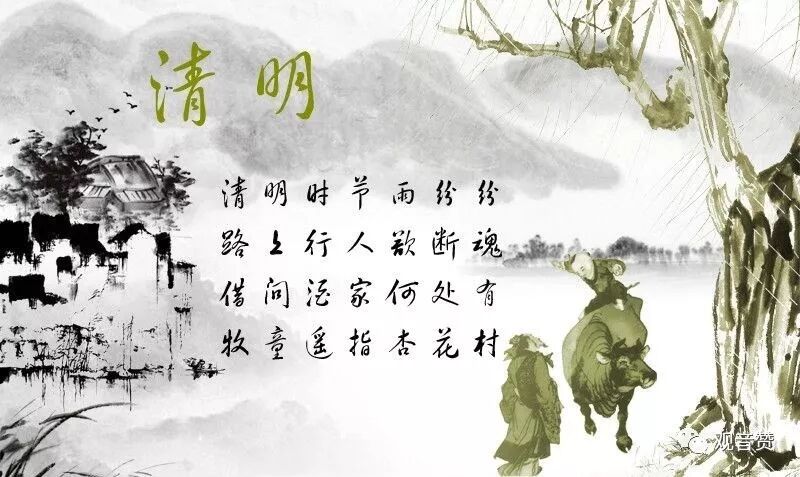 清明
清明时节雨纷纷
路上行人欲断魂
借问酒家何处有
牧童遥指杏花村
观音赞